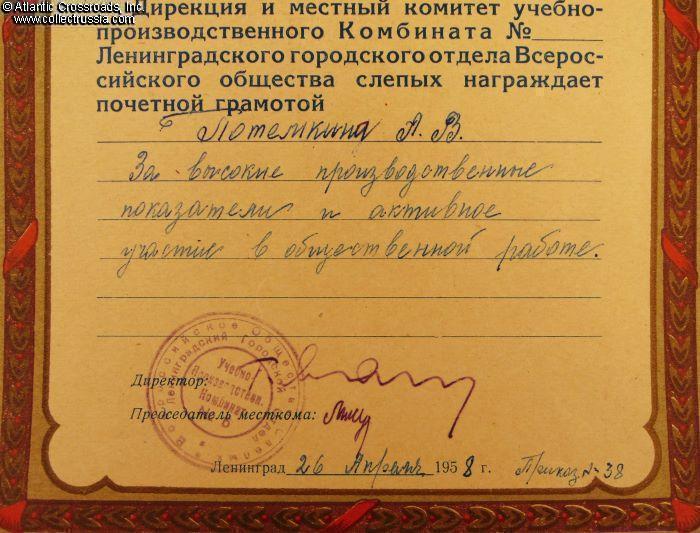 © Atlantic Crossroads, Inc.
www.collectrussia.com
Дирекция и местный комитет учебно-
производственного Комбината №
Ленинградского городского отдела Всерос-
сийского общества слепых награждает
почетной грамотой
Потемкину А. В.
За высокие производственные
показатели и активное
участие в общественной работе.
Директор:
Председатель месткома:
Ленинград 26 Апреля 1958 г. Приказ № 38
Всероссийское Общество слепых
Ленинградский Городской отдел
Учебно
Производствен.
Комбинат